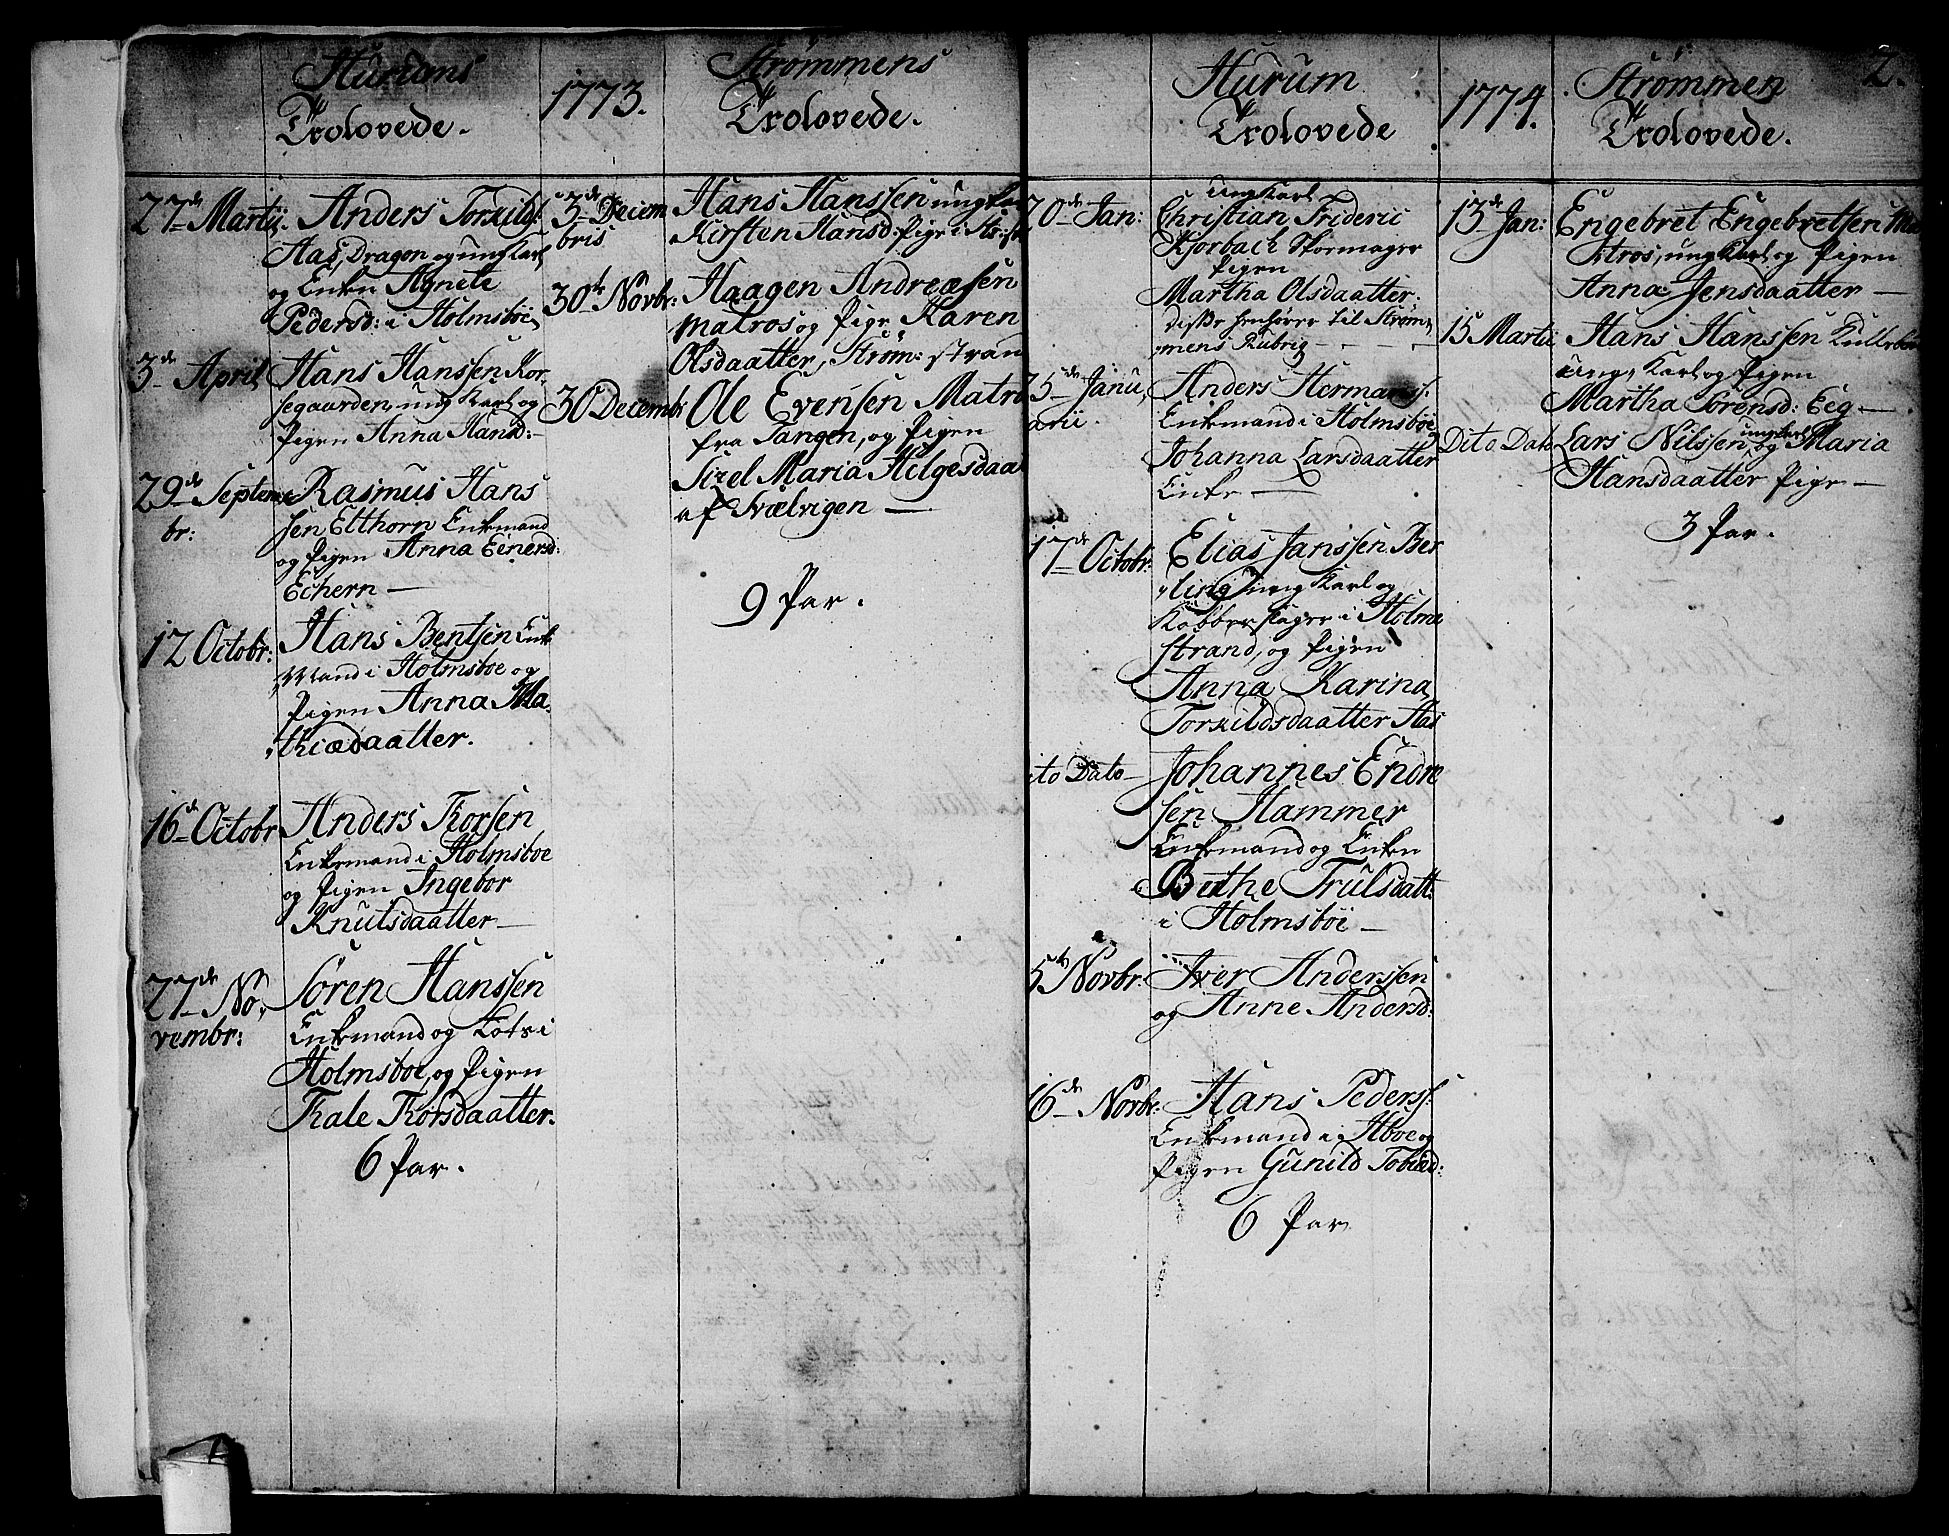 Hurums
Trolovede.
27de Martii.
Anders Torkilds:
Aas, Dragon og ung Karl,
og Enken Agnete
Pedersd: i Holmsboe,
3de April
Hans Hanssen Kor-
segaarden, ung Karl og
Pigen Anna Hansd: —
29de Septem
br:
Rasmus Hans
sen Elthorn Enkemand
og Pigen Anna Einersd:
Echern —
12 Octobr:
Hans Bentsen Enke
Mand i Holmsboe og
Pigen Anna Ma-
thiædaatter.
16de Octobr
Anders Thorsen
Enkemand i Holmsboe
og Pigen Ingebor
Knutsdaatter —
27de No-
vembr:
Sören Hanssen
Enkemand og Lots i
Holmsboe, og Pigen
Thale Thorsdaatter.
6 Par.
1773.
Strømmens
Trolovede.
3de Decem
bris
Hans Hanssen ung
Kirsten Hansd: Pige i
30te Novbr:
Haagen Andreæsen
Matros og Pige Karen
Olsdaatter, Strøm: stran
30 Decembr
Ole Evensen Matro
fra Tangen, og Pigen
Sizel Maria Helgesdaa
af Svælvigen —
9 Par.
Hurum
Trolovede
20de Jan:
ung Karl
Christian Frideric
Kjorbach Skomager
Pigen
Martha Olsdaatter.
disse henhörer til Ström,
mens Rubriq — — —
25de Janu,
arii.
Anders Hermanss:
Enkemand i Holmsboe
Johanna Larsdaatter
Enke —
17de Octobr:
Elias Janssen Ber
ling ung Karl og
Kobberslager i Holme
strand, og Pigen
Anna Karina
Torkildsdaatter Aas
ito Dato —
Johannes Endre
sen Hammer
Enkemand og Enken
Bethe Trulsdatt:
i Holmsböe —
5te Novbr:
Iver Anderssen
og Anne Andersd:
16de Novbr:
Hans Pederss:
Enkemand i Aboe og
Pigen Gunild Tobiæd:
6 Par
1774.
2.
Strømmen
Trolovede.
13de Jan:
Engebret Engebretsen Ma
tros, ung Karl og Pigen
Anna Jensdaatter —
15 Martii
Hans Hanssen
ung Karl og Pigen
Martha Sörensd: Eeg —
Dito Dato
Lars Nilssen ungkarl og Maria
Hansdaatter Pige —
3 Par.